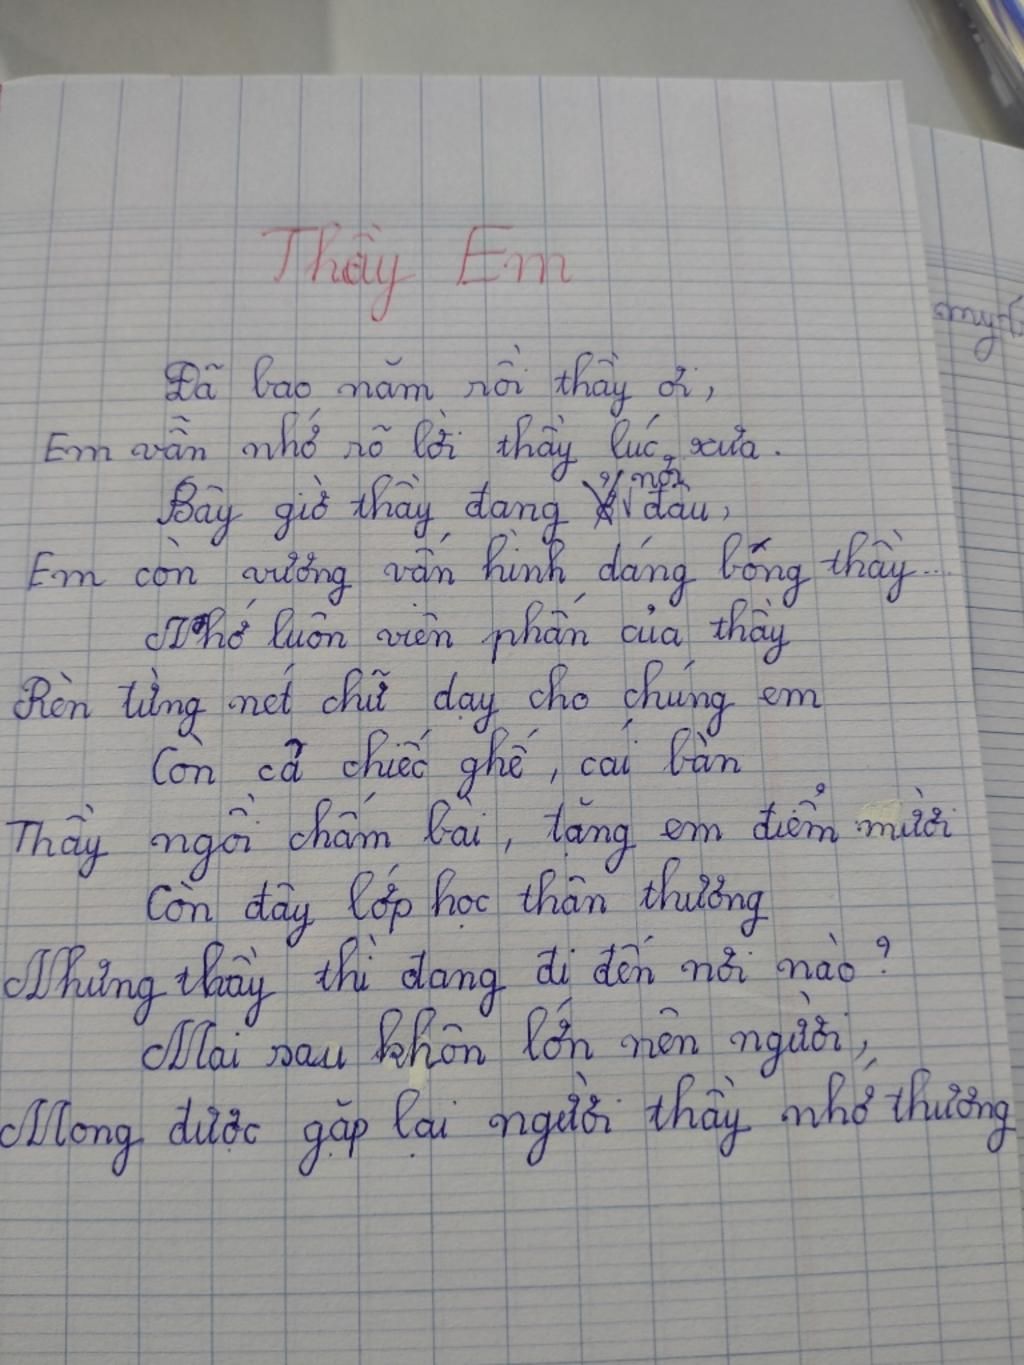 Thầy Em
Đã bao năm rồi thầy ơi,
Em vẫn nhớ rõ lời thầy lúc xưa.
Bây giờ thầy đang ở nơi đâu,
Em còn vương vấn hình dáng bóng thầy...
Nhớ luôn viên phấn của thầy
Rèn từng nét chữ dạy cho chúng em
Còn cả chiếc ghế, cái bàn
Thầy ngồi chấm bài, tặng em điểm mười
Còn đây lớp học thân thương
Nhưng thầy thì đang đi đến nơi nào?
Mai sau khôn lớn nên người,
Mong được gặp lại người thầy nhớ thương